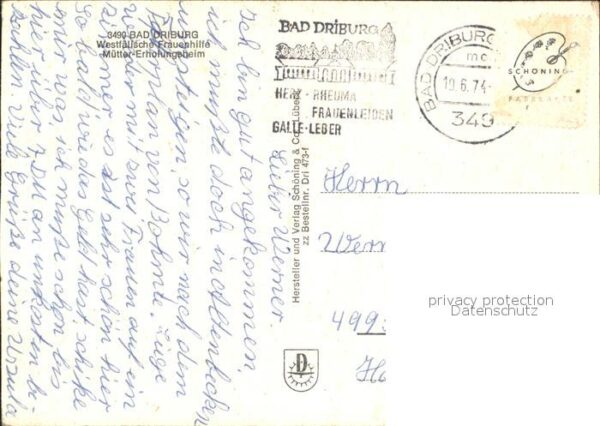 3490 BAD DRIBURG
Westfälische Frauenhilfe
Mütter-Erholungsheim
BAD DRIBURG
HERZ - RHEUMA
FRAUENLEIDEN
GALLE-LEBER
BAD DRIBURG
mc
19.6.74
349
SCHÖNING
FARBKARTE
Hersteller und Verlag Schöning & Co., Lübeck
zz Bestellnr. Dri 473-f
Lieber Werner.
Ich bin gut angekommen
ich mußte doch in Altenbeken
umsteigen, so wir nach dem
Fahrplan von Bohmte. Liege
wieder mit zwei Frauen auf ein
Zimmer es ist sehr schön hier
So bald wie du Geld hast. schike
mir was, ich muße schon bis
hier für 20 Man unkosten be-
zahlen Viel Grüße deine Ursula
Herrn
Wern
499
privacy protection
Datenschutz